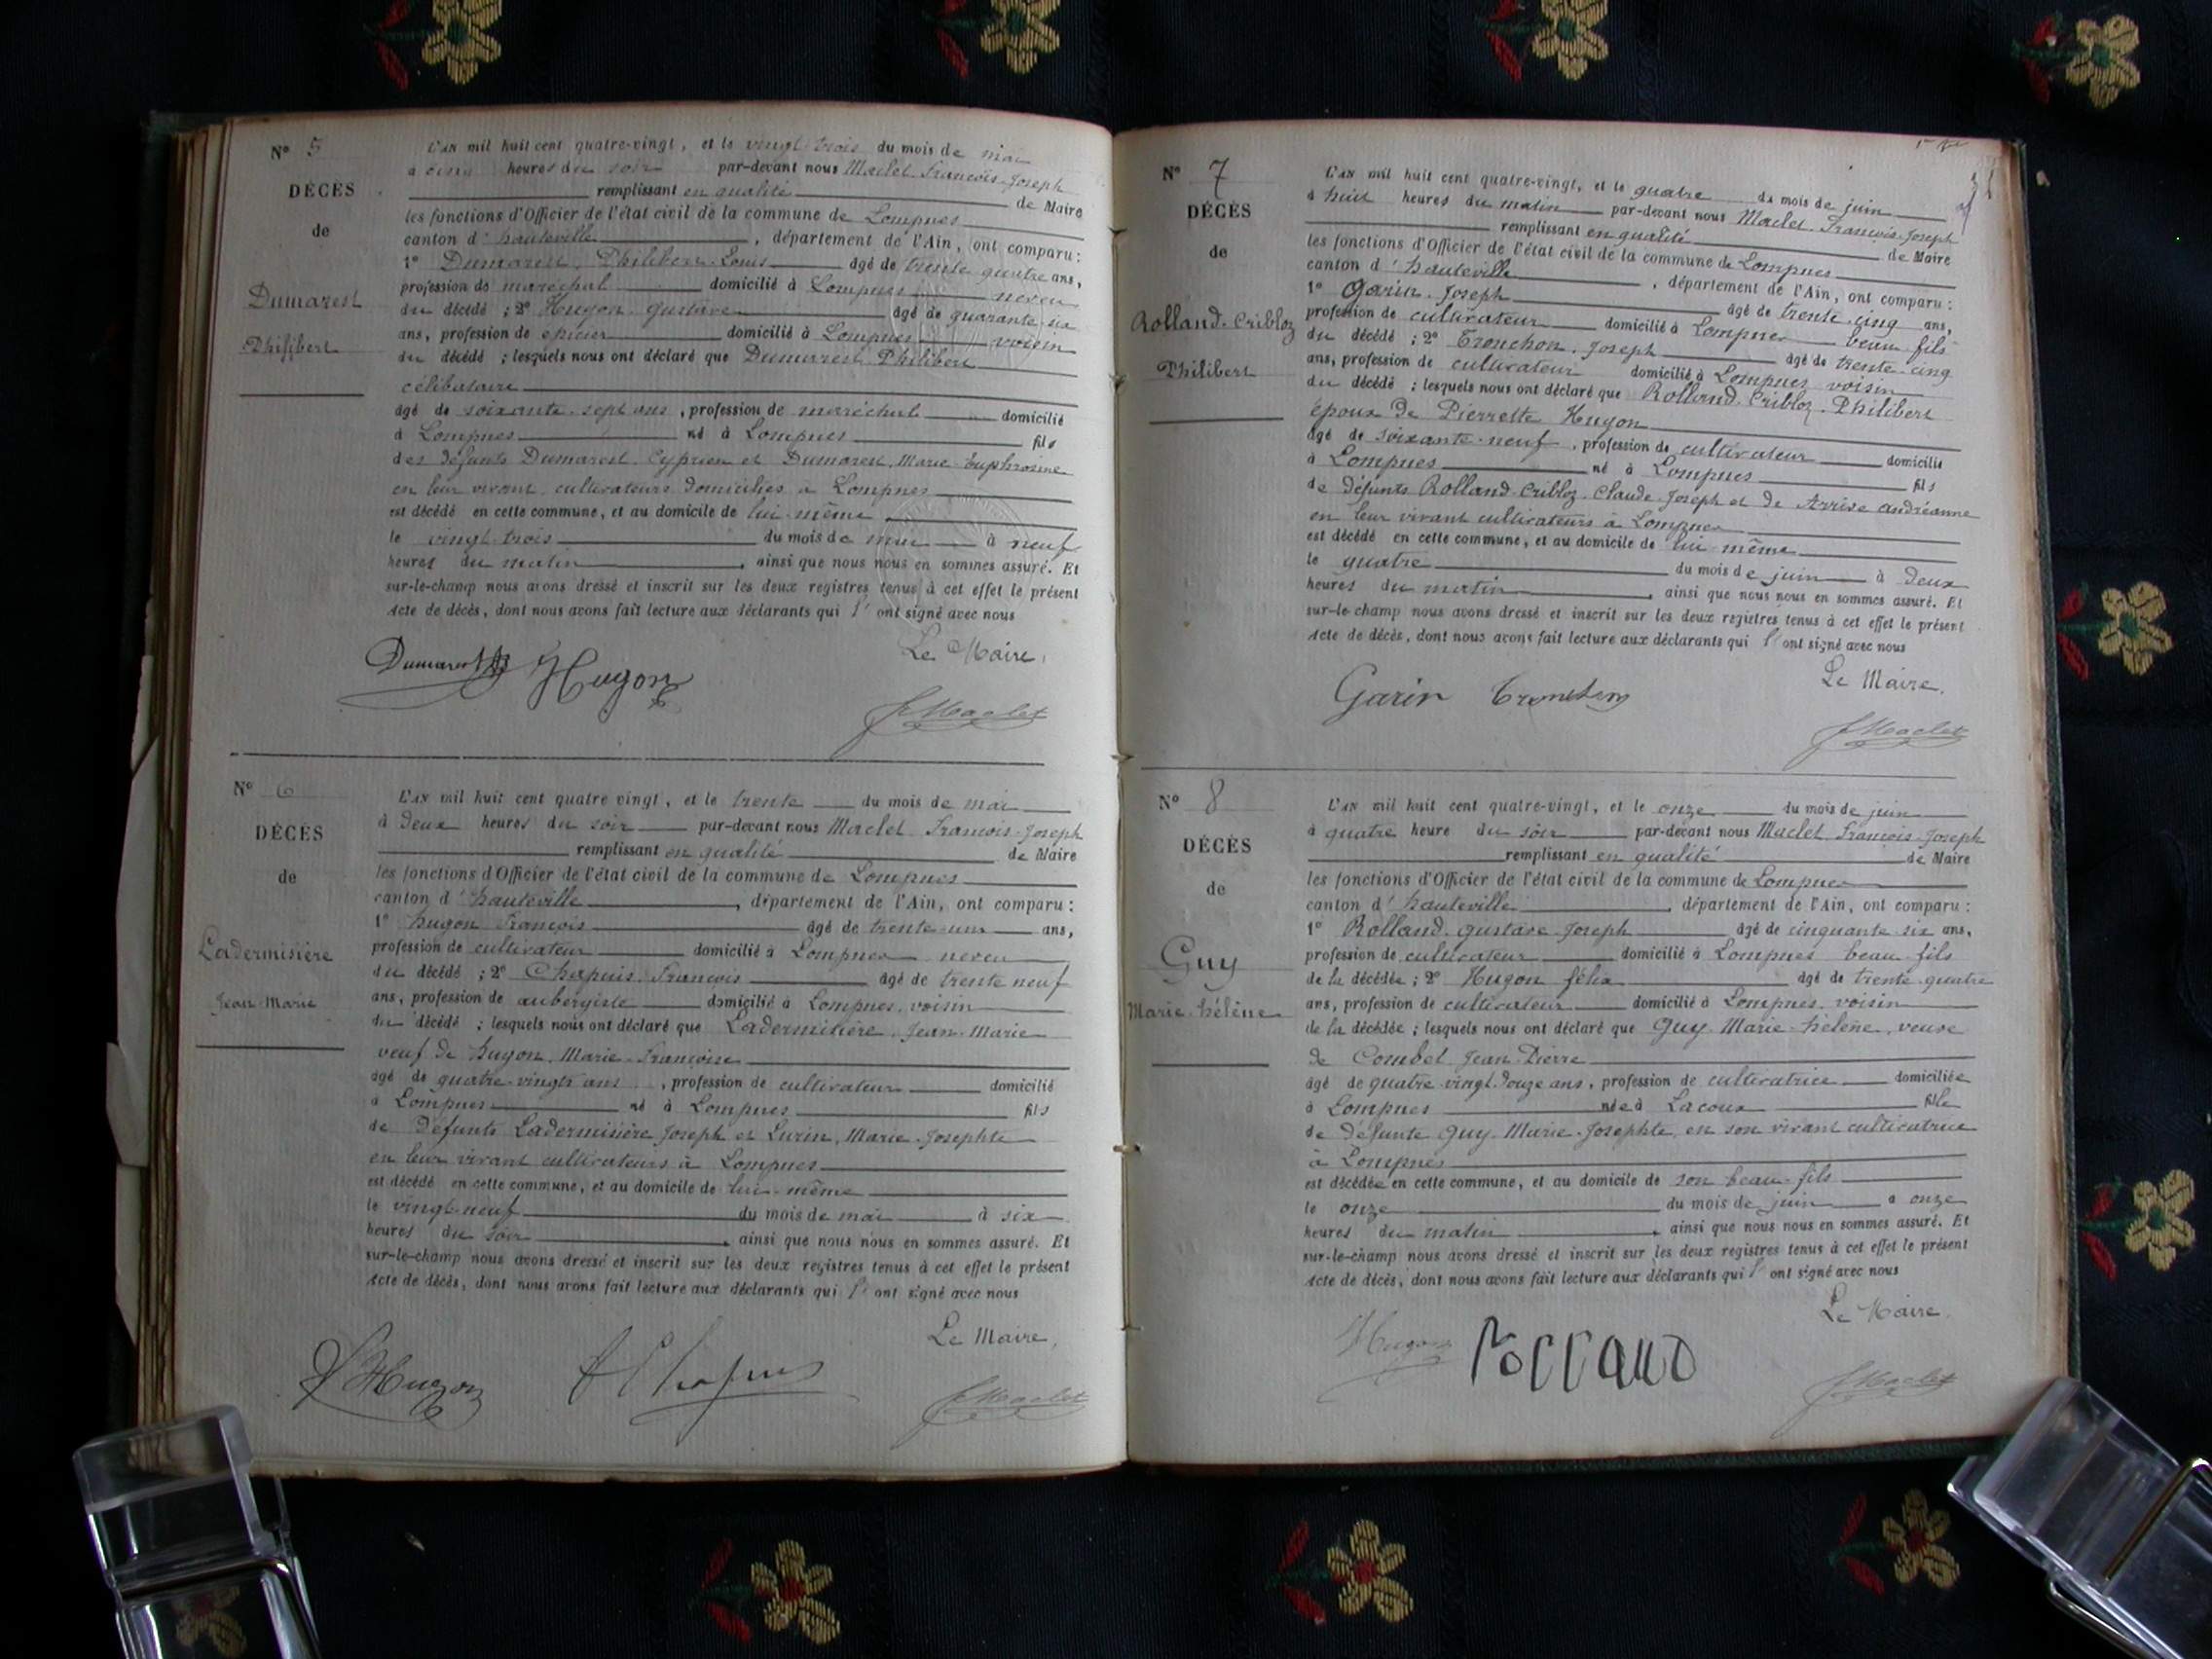 N° 5
DÉCÈS
de
Dumarest
Philibert
L'AN mil huit cent quatre-vingt, et le vingt trois du mois de mai
à cinq heures du soir par-devant nous Maclet François-Joseph
remplissant en qualité de Maire
les fonctions d'Officier de l'état civil de la commune de Lompnes
canton d'hauteville, département de l'Ain, ont comparu:
1° Dumarest, Philibert Louis âgé de trente quatre ans,
profession de maréchal domicilié à Lompnes neveu
du décédé ; 2° Hugon gustave âgé de quarante-six
ans, profession de épicier domicilié à Lompnes voisin
du décédé ; lesquels nous ont déclaré que Dumarest Philibert
célibataire
âgé de soixante-sept ans, profession de maréchal domicilié
à Lompnes né à Lompnes fils
des défunts Dumarest Cyprien et Dumarest Marie Euphrosine
en leur vivant cultivateurs domiciliés à Lompnes
est décédé en cette commune, et au domicile de lui-même
le vingt-trois du mois de mai à neuf
heures du matin, ainsi que nous nous en sommes assuré. Et
sur-le-champ nous avons dressé et inscrit sur les deux registres tenus à cet effet le présent
acte de décès, dont nous avons fait lecture aux déclarants qui l'ont signé avec nous
Le Maire,
Dumarest Hugon
J Maclet
N° 6
DÉCÈS
de
Ladermisière
Jean-Marie
L'AN mil huit cent quatre vingt, et le trente du mois de mai
à deux heures du soir par-devant nous Maclet François-Joseph
remplissant en qualité de Maire
les fonctions d'Officier de l'état civil de la commune de Lompnes
canton d'hauteville, département de l'Ain, ont comparu:
1° hugon François âgé de trente-un ans,
profession de cultivateur domicilié à Lompnes neveu
du décédé ; 2° Chapuis François âgé de trente neuf
ans, profession de aubergiste domicilié à Lompnes, voisin
du décédé ; lesquels nous ont déclaré que Ladermisière Jean-Marie
veuf de hugon, Marie-Françoise
âgé de quatre-vingts ans, profession de cultivateur domicilié
à Lompnes né à Lompnes fils
de défunts Ladermisière Joseph et Lurin, Marie-Josephte
en leur vivant cultivateurs à Lompnes
est décédé en cette commune, et au domicile de lui-même
le vingt-neuf du mois de mai à six
heures du soir, ainsi que nous nous en sommes assuré. Et
sur-le-champ nous avons dressé et inscrit sur les deux registres tenus à cet effet le présent
acte de décès, dont nous avons fait lecture aux déclarants qui l'ont signé avec nous
Le Maire,
Hugon Chapuis
J Maclet
N° 7
DÉCÈS
de
Rolland-Cribloz
Philibert
L'AN mil huit cent quatre-vingt, et le quatre du mois de juin
à huit heures du matin par-devant nous Maclet François-Joseph
remplissant en qualité de Maire
les fonctions d'Officier de l'état civil de la commune de Lompnes
canton d'hauteville, département de l'Ain, ont comparu:
1° Garin Joseph âgé de trente-cinq ans,
profession de cultivateur domicilié à Lompnes beau fils
du décédé ; 2° Tronchon Joseph âgé de trente-cinq
ans, profession de cultivateur domicilié à Lompnes voisin
du décédé ; lesquels nous ont déclaré que Rolland-Cribloz Philibert
époux de Pierrette Hugon
âgé de soixante-neuf, profession de cultivateur domicilié
à Lompnes né à Lompnes fils
de défunts Rolland-Cribloz Claude-Joseph et de andréanne
en leur vivant cultivateurs à Lompnes
est décédé en cette commune, et au domicile de lui-même
le quatre du mois de juin à deux
heures du matin, ainsi que nous nous en sommes assuré. Et
sur-le-champ nous avons dressé et inscrit sur les deux registres tenus à cet effet le présent
acte de décès, dont nous avons fait lecture aux déclarants qui l'ont signé avec nous
Le Maire,
Garin Tronchon
J Maclet
N° 8
DÉCÈS
de
Guy
Marie-hélène
L'AN mil huit cent quatre-vingt, et le onze du mois de juin
à quatre heure du soir par-devant nous Maclet François-Joseph
remplissant en qualité de Maire
les fonctions d'Officier de l'état civil de la commune de Lompnes
canton d'hauteville, département de l'Ain, ont comparu:
1° Rolland gustave Joseph âgé de cinquante six ans,
profession de cultivateur domicilié à Lompnes beau fils
de la décédée ; 2° Hugon félix âgé de trente-quatre
ans, profession de cultivateur domicilié à Lompnes, voisin
de la décédée ; lesquels nous ont déclaré que Guy Marie-hélène, veuve
de Combet Jean-Pierre
âgé de quatre-vingt-douze ans, profession de cultivatrice domiciliée
à Lompnes née à Lacoux fille
de défunte Guy Marie-Josephte en son vivant cultivatrice
à Lompnes
est décédée en cette commune, et au domicile de son beau-fils
le onze du mois de juin à onze
heures du matin, ainsi que nous nous en sommes assuré. Et
sur-le-champ nous avons dressé et inscrit sur les deux registres tenus à cet effet le présent
acte de décès, dont nous avons fait lecture aux déclarants qui l'ont signé avec nous
Le Maire,
Hugon rolland
J Maclet